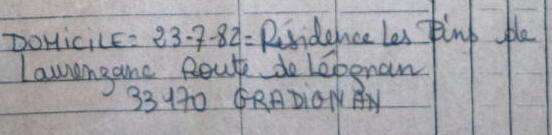 DOMICILE = 23-7-82 = Résidence Les Pins de
Laurenzane Route de Léognan
33170 GRADIGNAN